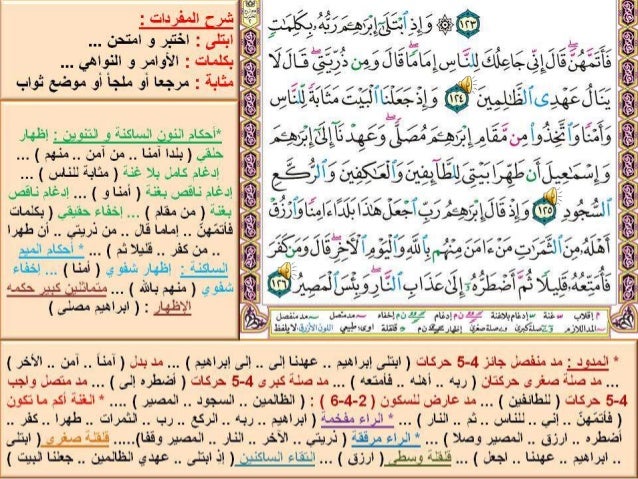 شرح المفردات :
ابتلى : اختبر و امتحن ...
بكلمات : الأوامر و النواهي ...
مثابة : مرجعا أو ملجأ أو موضع ثواب
*أحكام النون الساكنة و التنوين : إظهار
حلقي ( بلدا آمنا .. من آمن .. منهم ) ...
إدغام كامل بلا غنة ( مثابة للناس ) ...
إدغام ناقص بغنة ( أمنا و ) ... إدغام ناقص
بغنة ( من مقام ) ... إخفاء حقيقي ( بكلمات
فأتمهن .. إماما قال .. من ذريتي .. أن طهرا
.. من كفر .. قليلا ثم ) ... * أحكام الميم
الساكنة : إظهار شفوي ( أمنا ) ... إخفاء
شفوي ( منهم بالله ) ... متماثلين كبير حكمه
الإظهار : ( ابراهيم مصلى )
١٢٣ ۞ وَإِذِ ٱبْتَلَىٰٓ إِبْرَٰهِـۧمَ رَبُّهُۥ بِكَلِمَٰتٍ
فَأَتَمَّهُنَّ قَالَ إِنِّي جَاعِلُكَ لِلنَّاسِ إِمَامًا قَالَ وَمِن ذُرِّيَّتِي قَالَ لَا
يَنَالُ عَهْدِي ٱلظَّٰلِمِينَ ١٢٤ وَإِذْ جَعَلْنَا ٱلْبَيْتَ مَثَابَةً لِّلنَّاسِ
وَأَمْنًا وَٱتَّخِذُوا۟ مِن مَّقَامِ إِبْرَٰهِـۧمَ مُصَلًّى وَعَهِدْنَآ إِلَىٰٓ إِبْرَٰهِـۧمَ
وَإِسْمَٰعِيلَ أَن طَهِّرَا بَيْتِيَ لِلطَّآئِفِينَ وَٱلْعَٰكِفِينَ وَٱلرُّكَّعِ
ٱلسُّجُودِ ١٢٥ وَإِذْ قَالَ إِبْرَٰهِـۧمُ رَبِّ ٱجْعَلْ هَٰذَا بَلَدًا ءَامِنًا وَٱرْزُقْ
أَهْلَهُۥ مِنَ ٱلثَّمَرَٰتِ مَنْ ءَامَنَ مِنْهُم بِٱللَّهِ وَٱلْيَوْمِ ٱلْءَاخِرِ قَالَ وَمَن كَفَرَ
فَأُمَتِّعُهُۥ قَلِيلًا ثُمَّ أَضْطَرُّهُۥٓ إِلَىٰ عَذَابِ ٱلنَّارِ وَبِئْسَ ٱلْمَصِيرُ ١٢٦
* المدود : مد منفصل جائز 4-5 حركات ( ابتلى إبراهيم .. عهدنا إلى .. إلى إبراهيم ) ... مد بدل ( آمناً .. آمن .. الآخر )
... مد صلة صغرى حركتان ( ربه .. أهله .. فأمتعه ) ... مد صلة كبرى 4-5 حركات ( أضطره إلى ) ... مد متصل واجب
4-5 حركات ( للطائفين ) ... مد عارض للسكون ( 2-4-6 ) : ( الظالمين .. السجود .. المصير ) .... * الغنة أكم ما تكون
( فأتمّهنّ .. إني .. للناس .. ثم .. النار ) ... * الراء مفخمة ( ابراهيم .. ربه .. الركع .. رب .. الثمرات .. طهرا .. كفر ..
أضطره .. ارزق .. المصير وصلا ) ... * الراء مرققة ( ذريتي .. الآخر .. النار .. المصير وقفا)..... قلقلة صغرى ( ابتلى
.. ابراهيم .. عهدنا .. اجعل ) ... قلقلة وسطى ( ارزق ) .... التقاء الساكنين ( إذ ابتلى .. عهدي الظالمين .. جعلنا البيت )